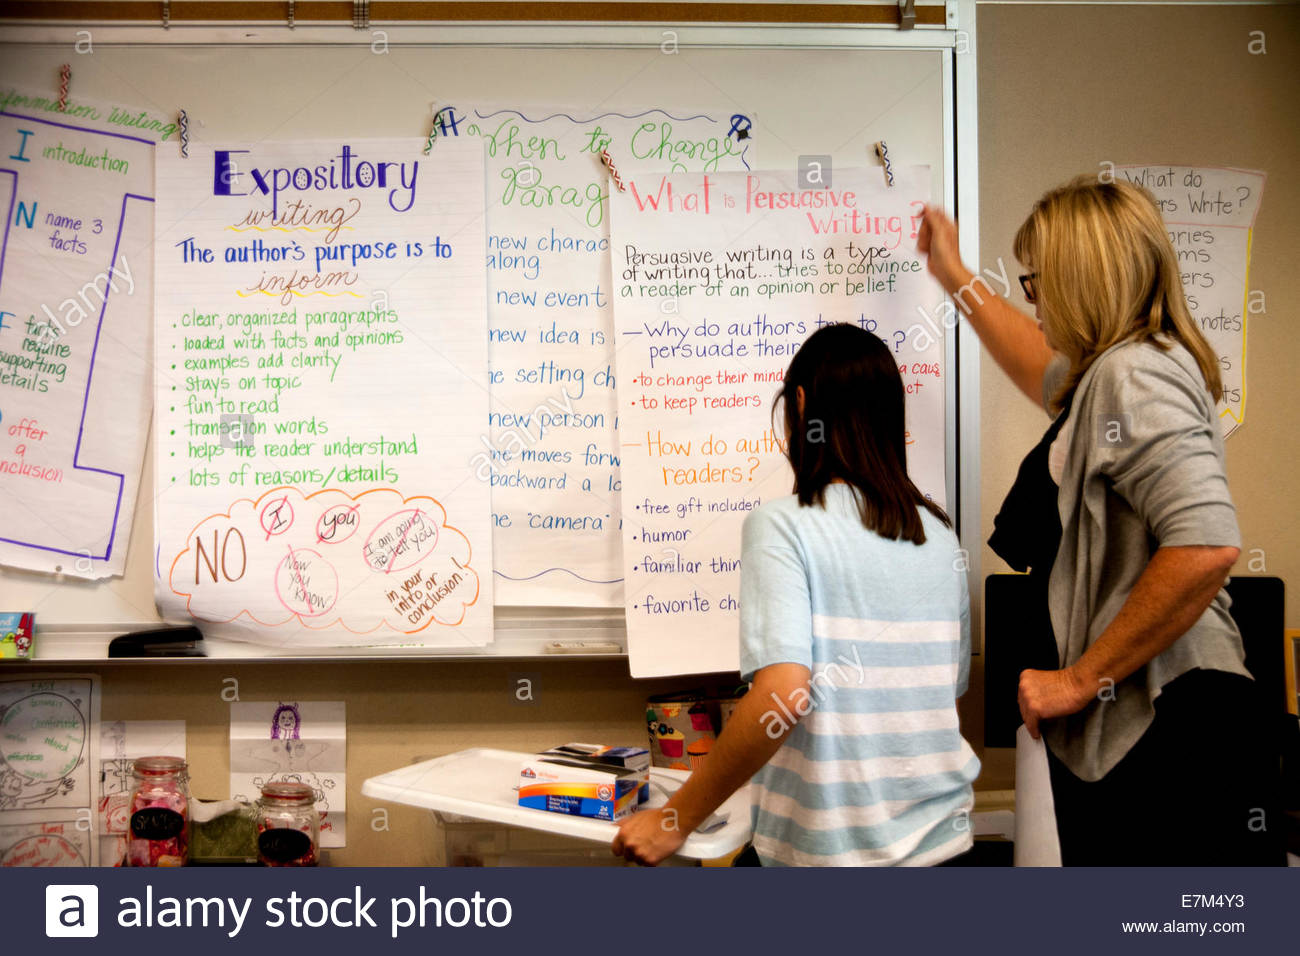 Information Writing
I introduction
N name 3
facts
F facts
require
supporting
details
O offer
a
conclusion
Expository
writing
The author's purpose is to
inform
• clear, organized paragraphs
• loaded with facts and opinions
• examples add clarity
• stays on topic
• fun to read
• transition words
• helps the reader understand
• lots of reasons/details
NO
I
you
I am going
to tell you
Now
you
know
in your
intro or
conclusion!
When to Change
Parag
new charac
along
new event
new idea is
he setting ch
new person
me moves forw
backward a lo
he "camera"
What is Persuasive
Writing?
Persuasive writing is a type
of writing that... tries to convince
a reader of an opinion or belief.
— Why do authors try to
persuade their ?
• to change their mind
a caus
• to keep readers
ct
— How do autho
readers?
• free gift included
• humor
• familiar thin
• favorite cha
What do
ers Write?
ories
ms
ers
notes
ts
EASY
Comfortable
effortless
24
a alamy stock photo
E7M4Y3
www.alamy.com
alamy
a